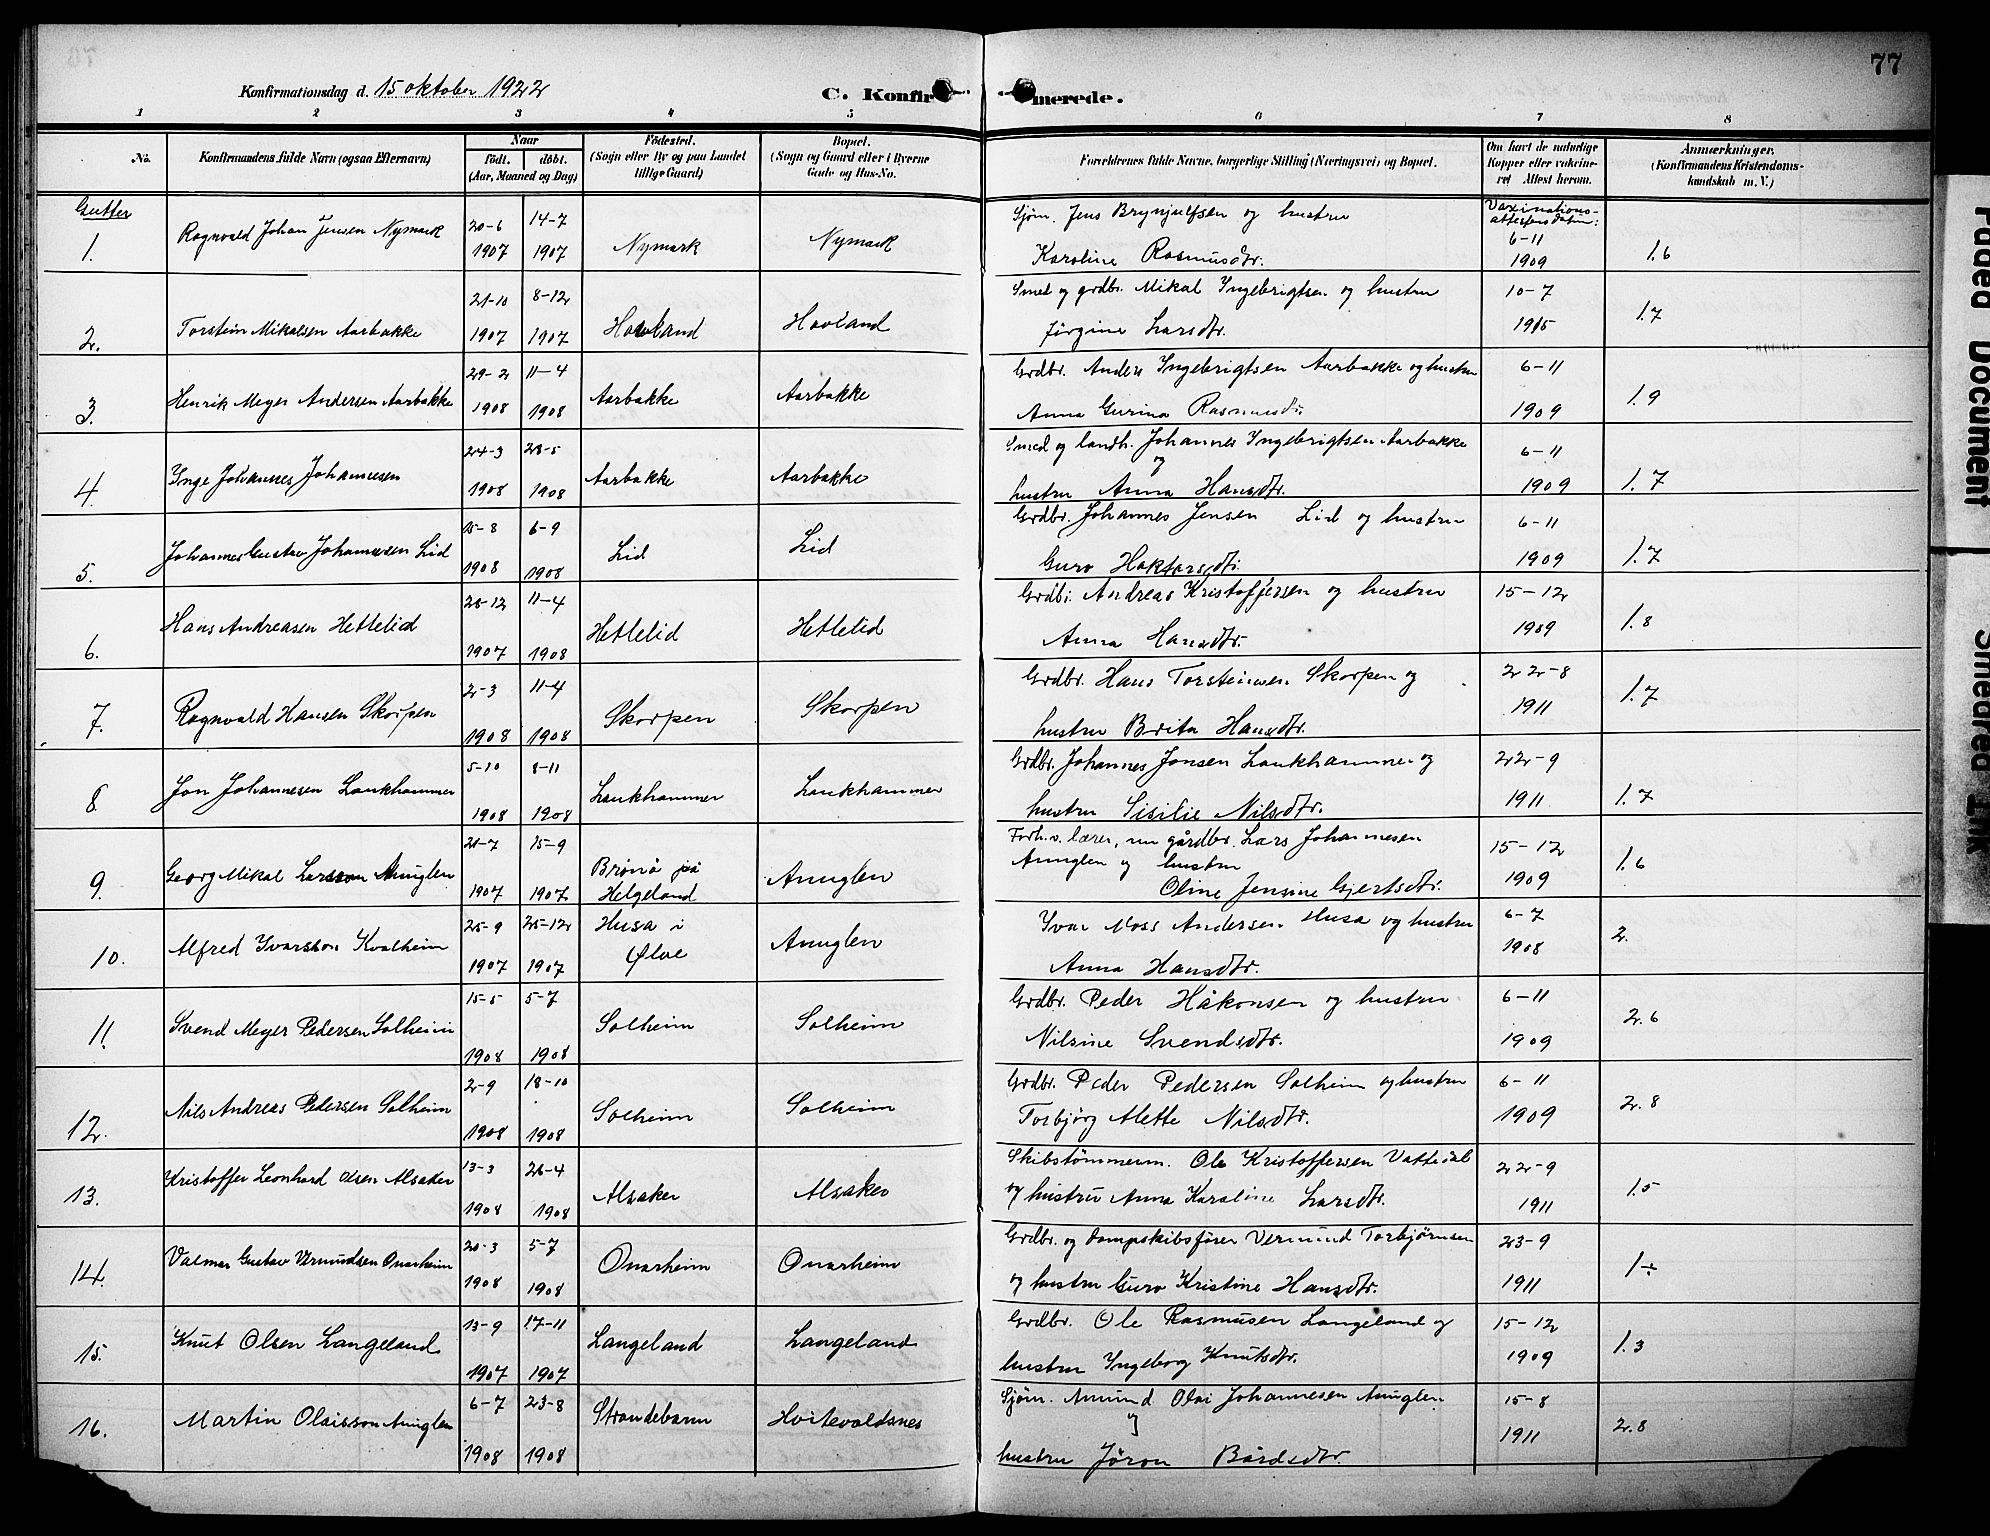 77
Konfirmationsdag d. 15 oktober 1922
C. Konfirmerede.
1 2 3 4 5 6 7 8
No. Konfirmandens fulde Navn (ogsaa Efternavn) Naar født. døbt. (Aar, Maaned og Dag) Fødested. (Sogn eller By og paa Landet tillige Gaard) Bopæl. (Sogn og Gaard eller i Byerne Gade og Hus-No. Forældrenes fulde Navne, borgerlige Stilling (Næringsvei) og Bopæl. Om havt de naturlige Kopper eller vakcineret Attest herom. Anmærkninger. (Konfirmandens Kristendomskundskab m. V.)
Gutter
1. Ragnvald Johan Jensen Nymark 20-6 1907 14-7 1907 Nymark Nymark Sjøm. Jens Brynjulfsen og hustru Karoline Rasmusdtr. Vaxinations-attestens datum: 6-11 1909 1.6
2. Torstein Mikalsen Aarbakke 21-10 1907 8-12 1907 Hovland Hovland Smed og grdbr. Mikal Ingebrigtsen og hustru Jørgine Larsdtr. 10-7 1915 1.7
3. Henrik Meyer Andersen Aarbakke 29-2 1908 11-4 1908 Aarbakke Aarbakke Grdbr. Anders Ingebrigtsen Aarbakke og hustru Anna Gurina Rasmusdtr. 6-11 1909 1.9
4. Inge Johannes Johannesen 24-3 1908 28-5 1908 Aarbakke Aarbakke Smed og landh. Johannes Ingebrigtsen Aarbakke og hustru Anna Hansdtr. 6-11 1909 1.7
5. Johannes Gustav Johannesen Lid 15-8 1908 6-9 1908 Lid Lid Grdbr. Johannes Jensen Lid og hustru Guro 6-11 1909 1.7
6. Hans Andreasen Hettelid 28-12 1907 11-4 1908 Hettelid Hettelid Grdbr. Andreas Kristoffersen og hustru Anna Hansdtr. 15-12 1909 1.8
7. Ragnvald Hansen Skorpen 2-3 1908 11-4 1908 Skorpen Skorpen Grdbr. Hans Torsteinsen Skorpen og hustru Brita Hansdtr. 22-8 1911 1.7
8. Jon Johannesen Laukhammer 5-10 1908 8-11 1908 Laukhammer Laukhammer Grdbr. Johannes Jonsen Laukhammer og hustru Sisilie Nilsdtr. 22-9 1911 1.7
9. Georg Mikal Larsson Anuglen 21-7 1907 15-9 1907 Brønø på Helgeland Anuglen Forh.v. lærer, nu gårdbr. Lars Johannesen Anuglen og hustru Oline Jensine Gjertsdtr. 15-12 1909 1.6
10. Alfred Ivarsson Kvalheim 25-9 1907 25-12 1907 Husa i Ølve Anuglen Ivar Moss Andersen Husa og hustru Anna Hansdtr. 6-7 1908 2.
11. Svend Meyer Pedersen Solheim 15-5 1908 5-7 1908 Solheim Solheim Grdbr. Peder Håkonsen og hustru Nilsine Svendsdtr. 6-11 1909 2.6
12. Nils Andreas Pedersen Solheim 2-9 1908 18-10 1908 Solheim Solheim Grdbr. Peder Pedersen Solheim og hustru Torbjørg Alette Nilsdtr. 6-11 1909 2.8
13. Kristoffer Leonhard Olsen Alsaker 13-3 1908 26-4 1908 Alsaker Alsaker Skibstømmerm. Ole Kristoffersen Vattedal og hustru Anna Karoline Larsdtr. 22-9 1911 1.5
14. Valmer Gustav Vermundsen Onarheim 20-3 1908 5-7 1908 Onarheim Onarheim Grdbr. og dampskibsfører Vermund Torbjørnsen og hustru Guro Kristine Hansdtr. 23-9 1911 1 ÷
15. Knut Olsen Langeland 13-9 1907 17-11 1907 Langeland Langeland Grdbr. Ole Rasmusen Langeland og hustru Ingeborg Knutsdtr. 15-12 1909 1.3
16. Martin Olaisson Anuglen 6-7 1908 23-8 1908 Strandebarm Hvitevoldsnes Sjøm. Amund Olai Johannesen Anuglen og hustru Jøron Bårdsdtr. 15-8 1911 2.8
Faded Document
Smeared Ink